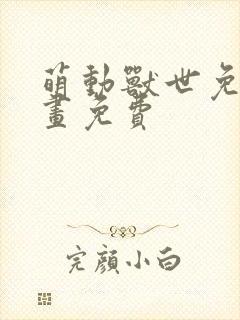 萌動獸世免
畫免費
完顏小白